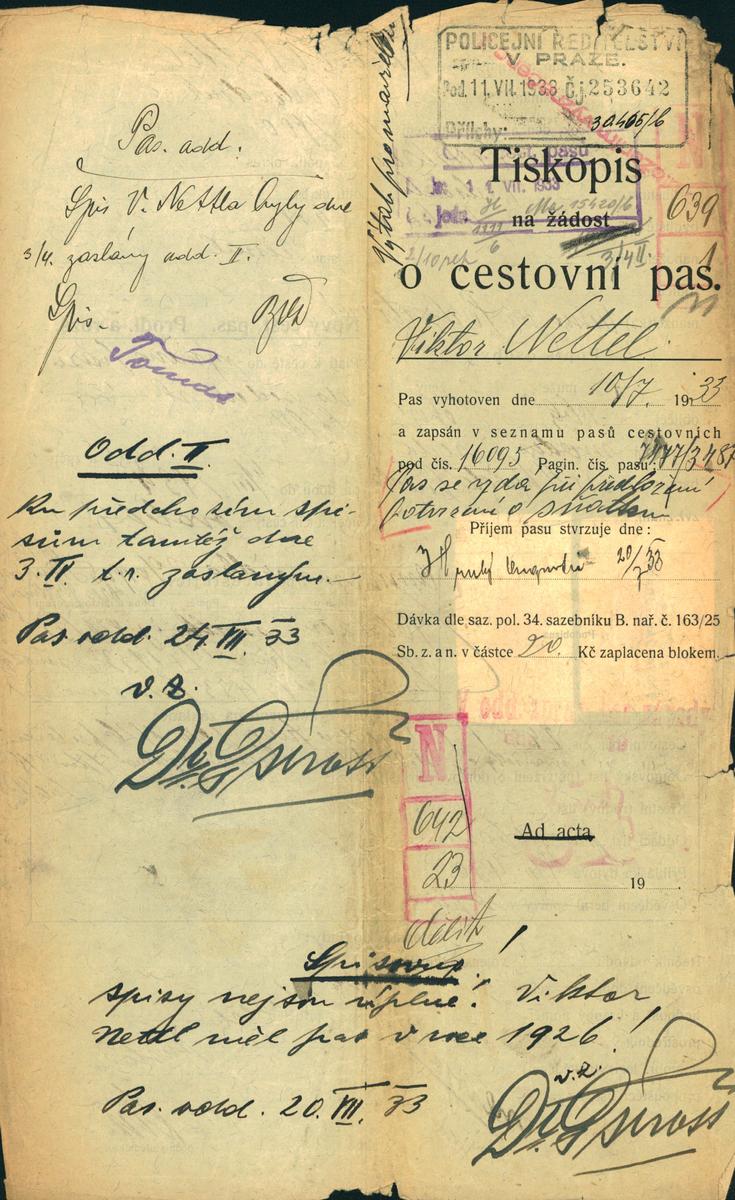 Pas. odd.
Spis V. Nettla byly dne
3/4. zaslány odd. II.
Spis.
Tomas
Odd. II.
Ku předchozím spi-
sům tamtéž dne
3. IV t.r. zaslaným.
Pas. odd. 24. VII. 33
v. z.
Výtah
POLICEJNÍ ŘEDITELSTVÍ
V PRAZE.
Pod. 11. VII. 1933 Čj. 253642
Přílohy:
30465/6
VII. 1933
15420/6
N
639
1
Tiskopis
na žádost
3/4 II.
o cestovní pas.
Viktor Nettel.
Pas vyhotoven dne 10/7. 1933
a zapsán v seznamu pasů cestovních
pod čís. 16095 Pagin. čís. pasu:
Pas se vydá při předložení
potvrzení o
Příjem pasu stvrzuje dne:
20/7 33
Dávka dle saz. pol. 34. sazebníku B. nař. č. 163/25
Sb. z. a n. v částce 20. Kč zaplacena blokem.
N
642
23
Ad acta
19
Spisovna!
spisy nejsou úplné! Viktor
Nettl měl pas v roce 1926!
v. z.
Pas. odd. 20. VII. 33